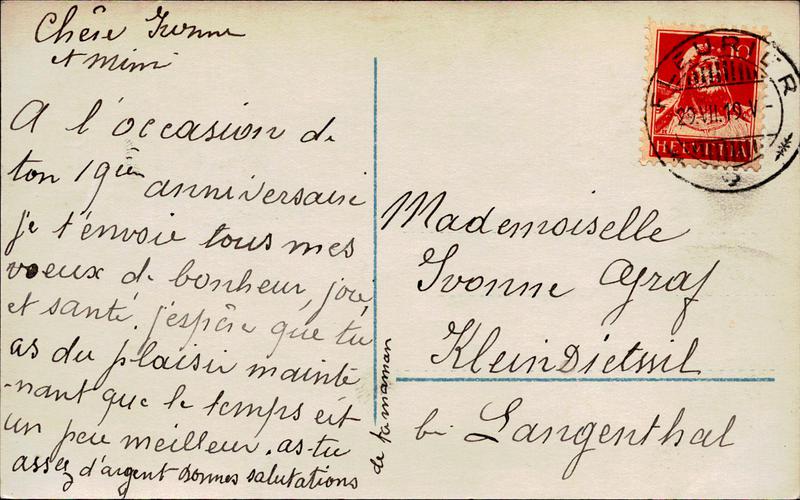 Chère Ivonne
et mimi
A l'occasion de
ton 19ièm anniversaire
je t'envoie tous mes
voeux de bonheur, joie,
et santé. j'espère que tu
as du plaisir mainte
-nant que le temps est
un peu meilleur. as-tu
assez d'argent Bonnes salutations
de ta maman
FLEURIER
29.VII.19.V-
10
HELVETIA
Mademoiselle
Ivonne Graf
KleinDietwil
bei Langenthal